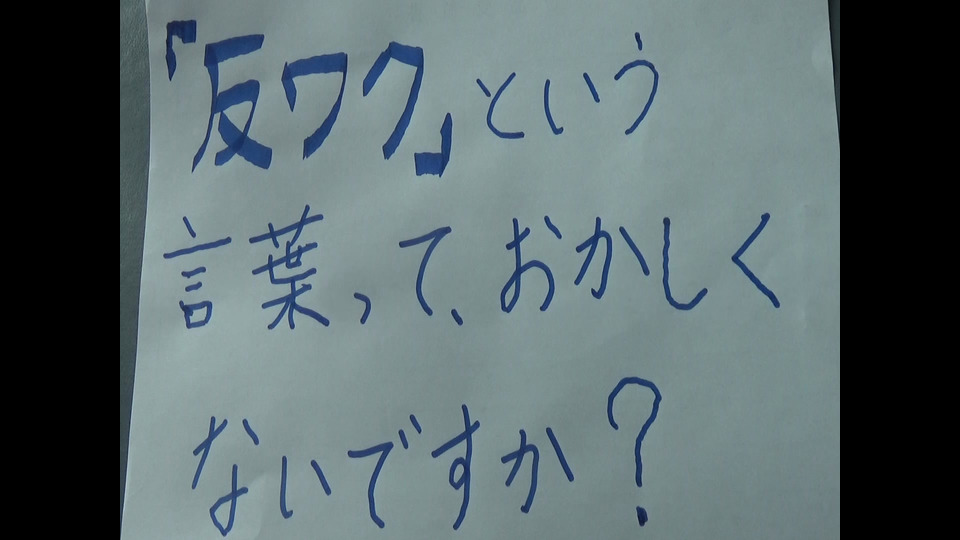 「反ワク」という
言葉って、おかしく
ないですか？